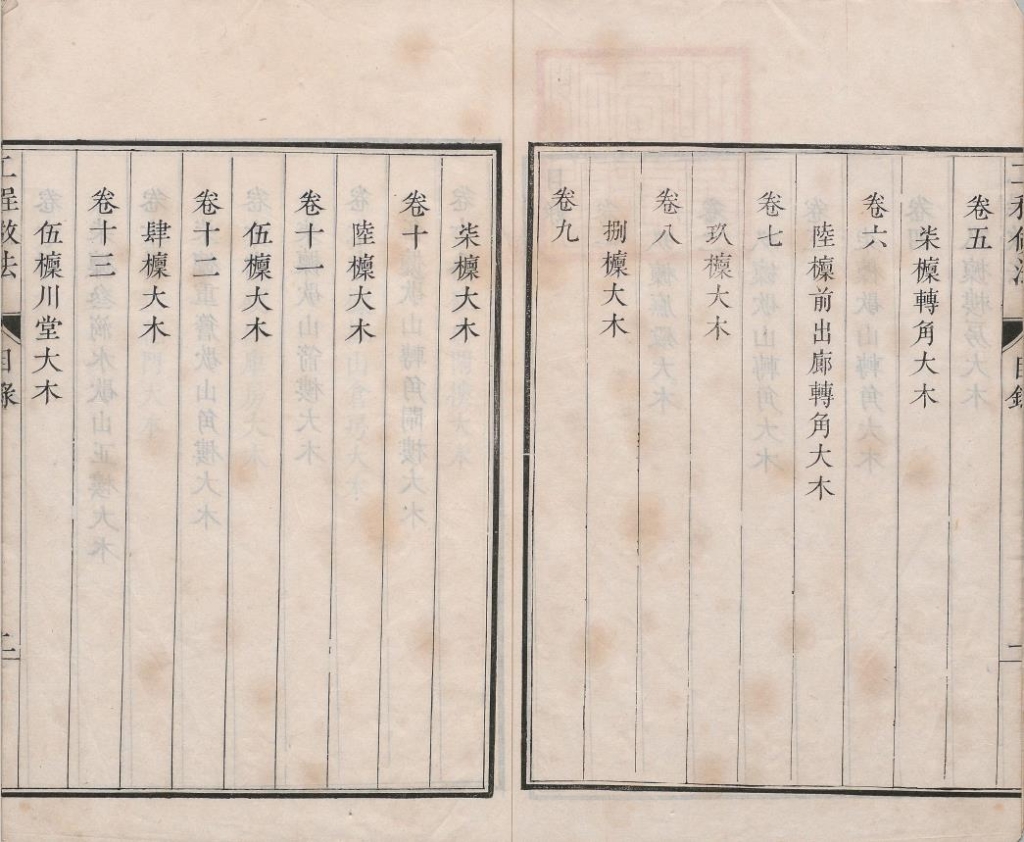 卷五
柒檁轉角大木
卷六
陸檁前出廊轉角大木
卷七
玖檁大木
卷八
捌檁大木
卷九
柒檁大木
卷十
陸檁大木
卷十一
伍檁大木
卷十二
肆檁大木
卷十三
伍檁川堂大木
工程做法 目錄 二